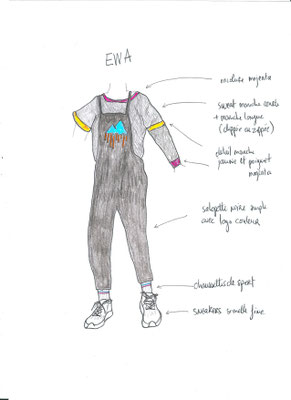 EWA
encolure magenta
sweat manche courte
+ manche longue
(clippée ou zippée)
détail manche
jaune et poignet
magenta
salopette noire ample
avec logo couleur
chaussettes de sport
sneakers semelle fine